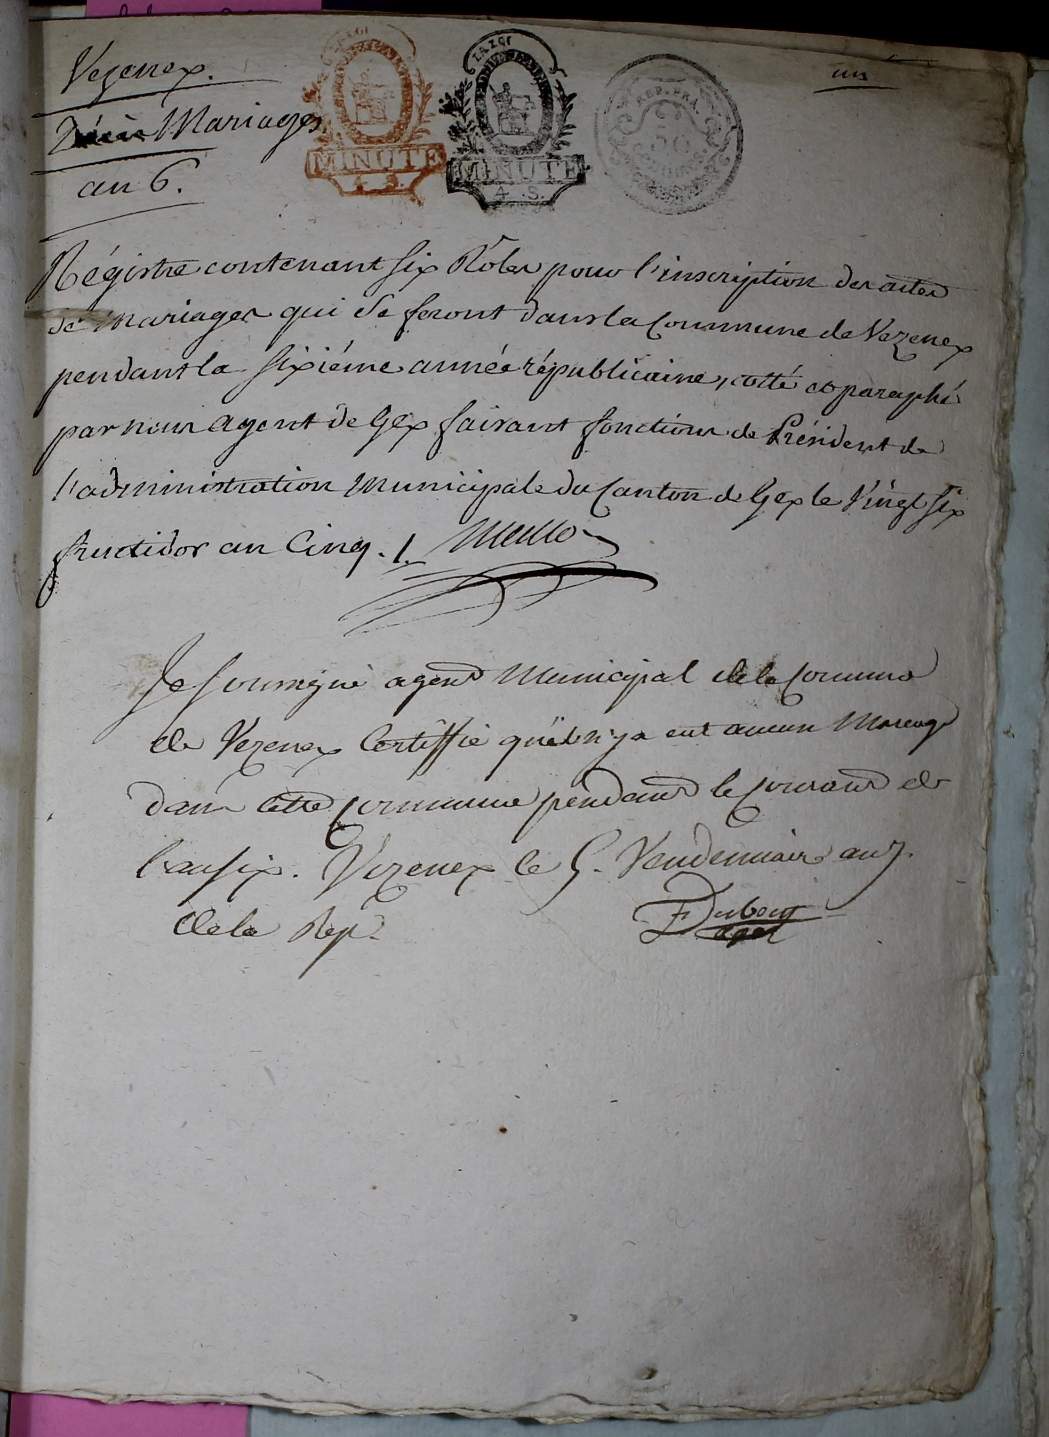 Vézenex.
Mariages
an 6.
un
LA LOI
LA LOI
MINUTE
MINUTE
4. S.
4. S.
REP. FRA.
50
Régistre contenant six Rôles pour l'inscription des actes
de Mariages qui se feront dans la Commune de Vezenex
pendant la sixiéme année républicaine, cotté et paraphé
par nous agent de Gex faisant fonctions de Président de
l'administration Municipale du Canton de Gex le Vingt six
fructidor an Cinq. /.
Je soussigné agend Municipal de la Commune
de Vezenex Certiffie qu'il n'y a eut aucun Mareage
dans cette Commune pendand le Courand de
l'an six. Vezenex le 5. Vendemiaire an 7.
de la Rep.
Duboug
agent